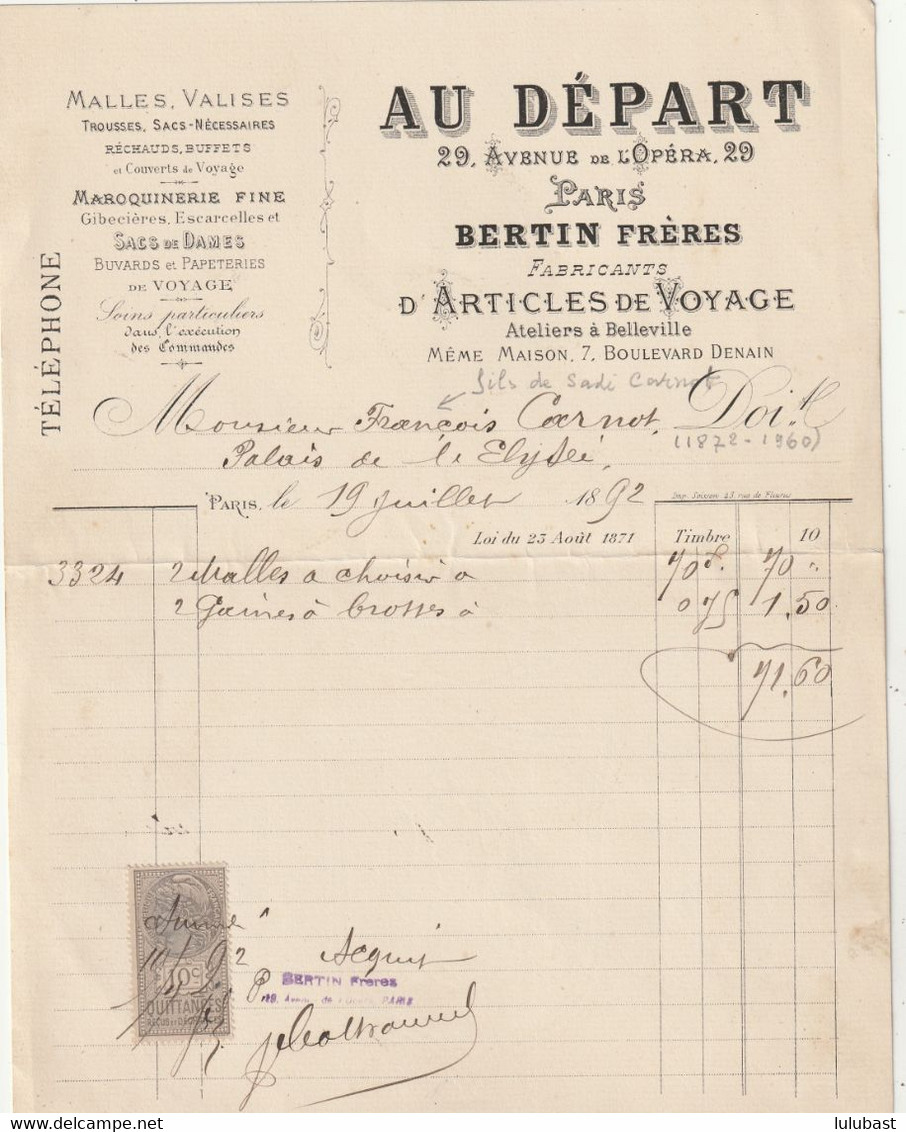 MALLES, VALISES
TROUSSES, SACS-NÉCESSAIRES
RÉCHAUDS, BUFFETS
et Couverts de Voyage
MAROQUINERIE FINE
Gibecières, Escarcelles et
SACS DE DAMES
BUVARDS et PAPETERIES
DE VOYAGE
Soins particuliers
dans l'exécution
des Commandes
TÉLÉPHONE
AU DÉPART
29, AVENUE DE L'OPÉRA, 29
PARIS
BERTIN FRÈRES
FABRICANTS
D'ARTICLES DE VOYAGE
Ateliers à Belleville
MÊME MAISON, 7, BOULEVARD DENAIN
fils de Sadi Carnot
Monsieur François Carnot, Doit
(1872-1960)
Palais de l'Elysée,
PARIS, le 19 Juillet 1892
Imp. Saison 23, rue de Fleurus
Loi du 23 Août 1871 Timbre 10
3324 2 Malles a choisir a 70 f. 70 "
2 Gaines à brosses à 0 75 1,50
71,60
10c
QUITTANCES
Acquit
BERTIN Freres
29, Avenue de l'Opéra, PARIS
lulubast